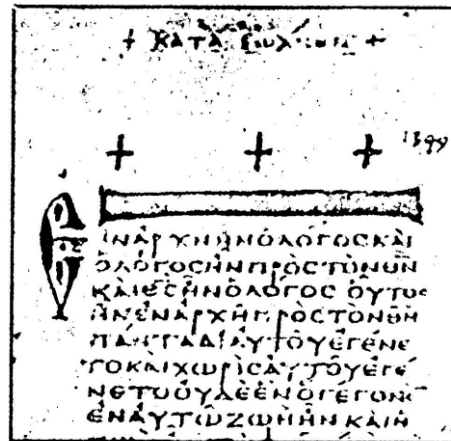 + ΚΑΤΑ +
+ + +
ΕΝΑΡΧΗΗΝΟΛΟΓΟϹΚΑΙ
ΟΛΟΓΟϹΗΝΠΡΟϹΤΟΝΘΝ
ΚΑΙΘϹΗΝΟΛΟΓΟϹ ΟΥΤΟϹ
ΗΝΕΝΑΡΧΗΠΡΟϹΤΟΝΘΝ
ΠΑΝΤΑΔΙΑΥΤΟΥΕΓΕΝΕ
ΤΟΚΑΙΧΩΡΙϹΑΥΤΟΥΕΓΕ
ΝΕΤΟΟΥΔΕΕΝΟΓΕΓΟΝΕ
ΕΝΑΥΤΩΖΩΗΗΝΚΑΙΗ